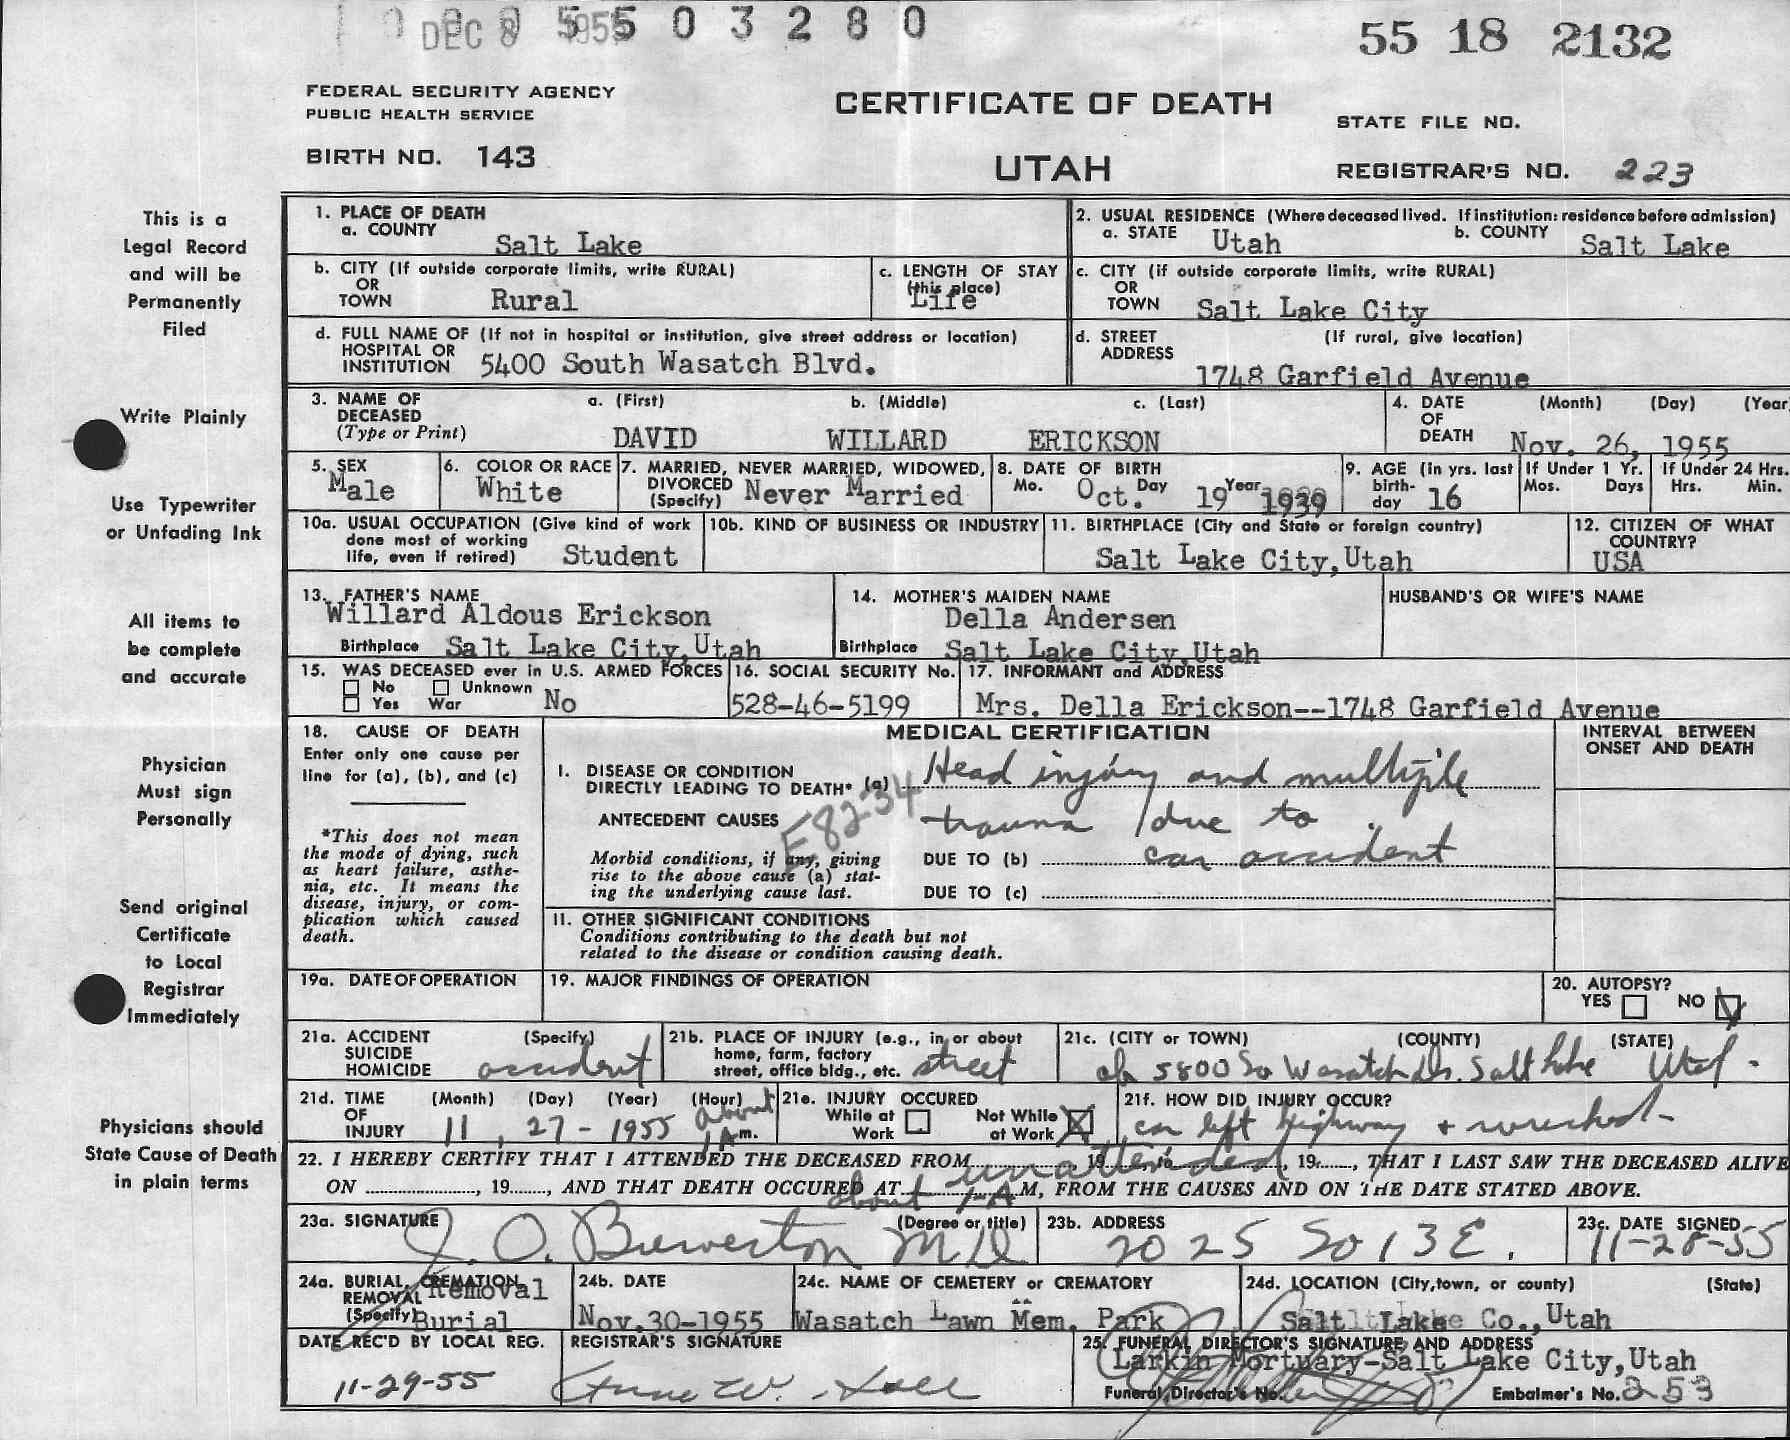 DEC 8 1955 5 5 0 3 2 8 0
55 18 2132
FEDERAL SECURITY AGENCY
PUBLIC HEALTH SERVICE
BIRTH NO. 143
CERTIFICATE OF DEATH
UTAH
STATE FILE NO.
REGISTRAR'S NO. 223
This is a
Legal Record
and will be
Permanently
Filed
Write Plainly
Use Typewriter
or Unfading Ink
All items to
be complete
and accurate
Physician
Must sign
Personally
Send original
Certificate
to Local
Registrar
Immediately
Physicians should
State Cause of Death
in plain terms
1. PLACE OF DEATH
a. COUNTY Salt Lake
2. USUAL RESIDENCE (Where deceased lived. If institution: residence before admission)
a. STATE Utah b. COUNTY Salt Lake
b. CITY (If outside corporate limits, write RURAL)
OR
TOWN Rural
c. LENGTH OF STAY
(this place)
Life
c. CITY (if outside corporate limits, write RURAL)
OR
TOWN Salt Lake City
d. FULL NAME OF (If not in hospital or institution, give street address or location)
HOSPITAL OR
INSTITUTION 5400 South Wasatch Blvd.
d. STREET (If rural, give location)
ADDRESS
1748 Garfield Avenue
3. NAME OF a. (First) b. (Middle) c. (Last)
DECEASED
(Type or Print) DAVID WILLARD ERICKSON
4. DATE (Month) (Day) (Year
OF
DEATH Nov. 26, 1955
5. SEX
Male
6. COLOR OR RACE
White
7. MARRIED, NEVER MARRIED, WIDOWED,
DIVORCED
(Specify) Never Married
8. DATE OF BIRTH
Mo. Day Year
Oct. 19 1939
9. AGE (in yrs. last
birth-
day 16
If Under 1 Yr.
Mos. Days
If Under 24 Hrs.
Hrs. Min.
10a. USUAL OCCUPATION (Give kind of work
done most of working
life, even if retired) Student
10b. KIND OF BUSINESS OR INDUSTRY
11. BIRTHPLACE (City and State or foreign country)
Salt Lake City,Utah
12. CITIZEN OF WHAT
COUNTRY?
USA
13. FATHER'S NAME
Willard Aldous Erickson
Birthplace Salt Lake City,Utah
14. MOTHER'S MAIDEN NAME
Della Andersen
Birthplace Salt Lake City,Utah
HUSBAND'S OR WIFE'S NAME
15. WAS DECEASED ever in U.S. ARMED FORCES
No Unknown No
Yes War
16. SOCIAL SECURITY No.
528-46-5199
17. INFORMANT and ADDRESS
Mrs. Della Erickson--1748 Garfield Avenue
18. CAUSE OF DEATH
Enter only one cause per
line for (a), (b), and (c)
*This does not mean
the mode of dying, such
as heart failure, asthe-
nia, etc. It means the
disease, injury, or com-
plication which caused
death.
MEDICAL CERTIFICATION
INTERVAL BETWEEN
ONSET AND DEATH
I. DISEASE OR CONDITION
DIRECTLY LEADING TO DEATH* (a) Head injury and multiple
E 82-34
ANTECEDENT CAUSES trauma / due to
Morbid conditions, if any, giving
rise to the above cause (a) stat-
ing the underlying cause last.
DUE TO (b) car accident
DUE TO (c)
II. OTHER SIGNIFICANT CONDITIONS
Conditions contributing to the death but not
related to the disease or condition causing death.
19a. DATE OF OPERATION
19. MAJOR FINDINGS OF OPERATION
20. AUTOPSY?
YES NO
21a. ACCIDENT (Specify)
SUICIDE
HOMICIDE accident
21b. PLACE OF INJURY (e.g., in or about
home, farm, factory
street, office bldg., etc. street
21c. (CITY or TOWN) (COUNTY) (STATE)
5800 So Wasatch Dr. Salt Lake Utah
21d. TIME (Month) (Day) (Year) (Hour)
OF
INJURY 11, 27 - 1955 about 1 A m.
21e. INJURY OCCURED
While at Work Not While at Work
21f. HOW DID INJURY OCCUR?
car left highway + wrecked
22. I HEREBY CERTIFY THAT I ATTENDED THE DECEASED FROM unattended, 19, to, 19, THAT I LAST SAW THE DECEASED ALIVE
ON, 19, AND THAT DEATH OCCURED AT about 1 A M, FROM THE CAUSES AND ON THE DATE STATED ABOVE.
23a. SIGNATURE (Degree or title)
J. O. Brewerton MD
23b. ADDRESS
2025 So 13 E.
23c. DATE SIGNED
11-28-55
24a. BURIAL, CREMATION,
REMOVAL Removal
(Specify) Burial
24b. DATE
Nov.30-1955
24c. NAME OF CEMETERY or CREMATORY
Wasatch Lawn Mem. Park
24d. LOCATION (City,town, or county) (State)
Salt Lake Co., Utah
DATE REC'D BY LOCAL REG.
11-29-55
REGISTRAR'S SIGNATURE
25. FUNERAL DIRECTOR'S SIGNATURE AND ADDRESS
Larkin Mortuary-Salt Lake City,Utah
Funeral Director's No. Embalmer's No. 253